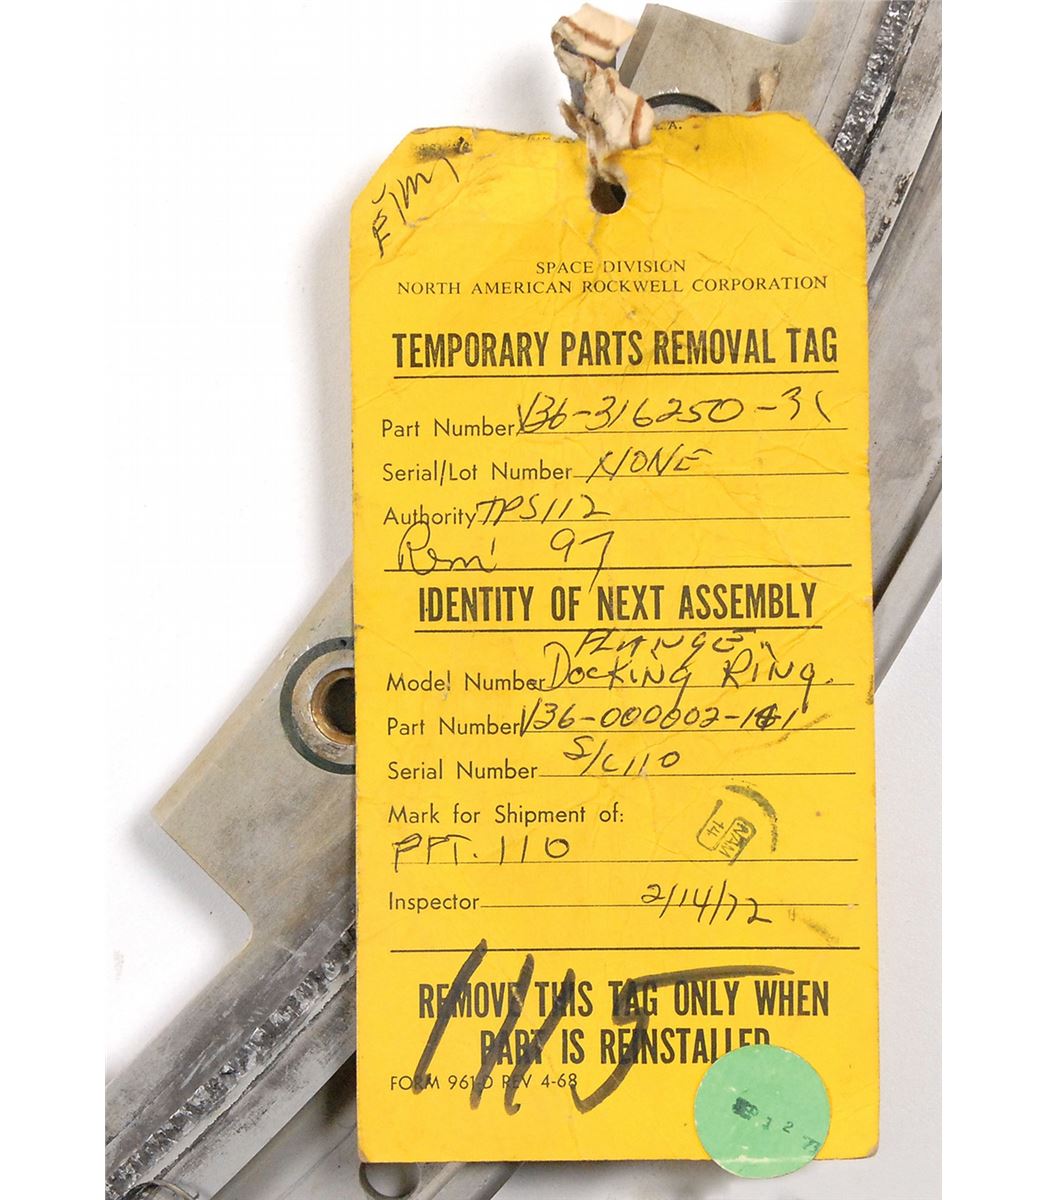 SPACE DIVISION
NORTH AMERICAN ROCKWELL CORPORATION
TEMPORARY PARTS REMOVAL TAG
Part Number V36-316250-31
Serial/Lot Number NONE
Authority TPS112
Rem' 97
IDENTITY OF NEXT ASSEMBLY
FLANGE
Model Number DOCKING RING.
Part Number V36-000002-161
Serial Number S/C110
Mark for Shipment of:
PPT. 110
NAM
14
Inspector 2/14/72
1115
REMOVE THIS TAG ONLY WHEN
PART IS REINSTALLED
FORM 961-D REV 4-68